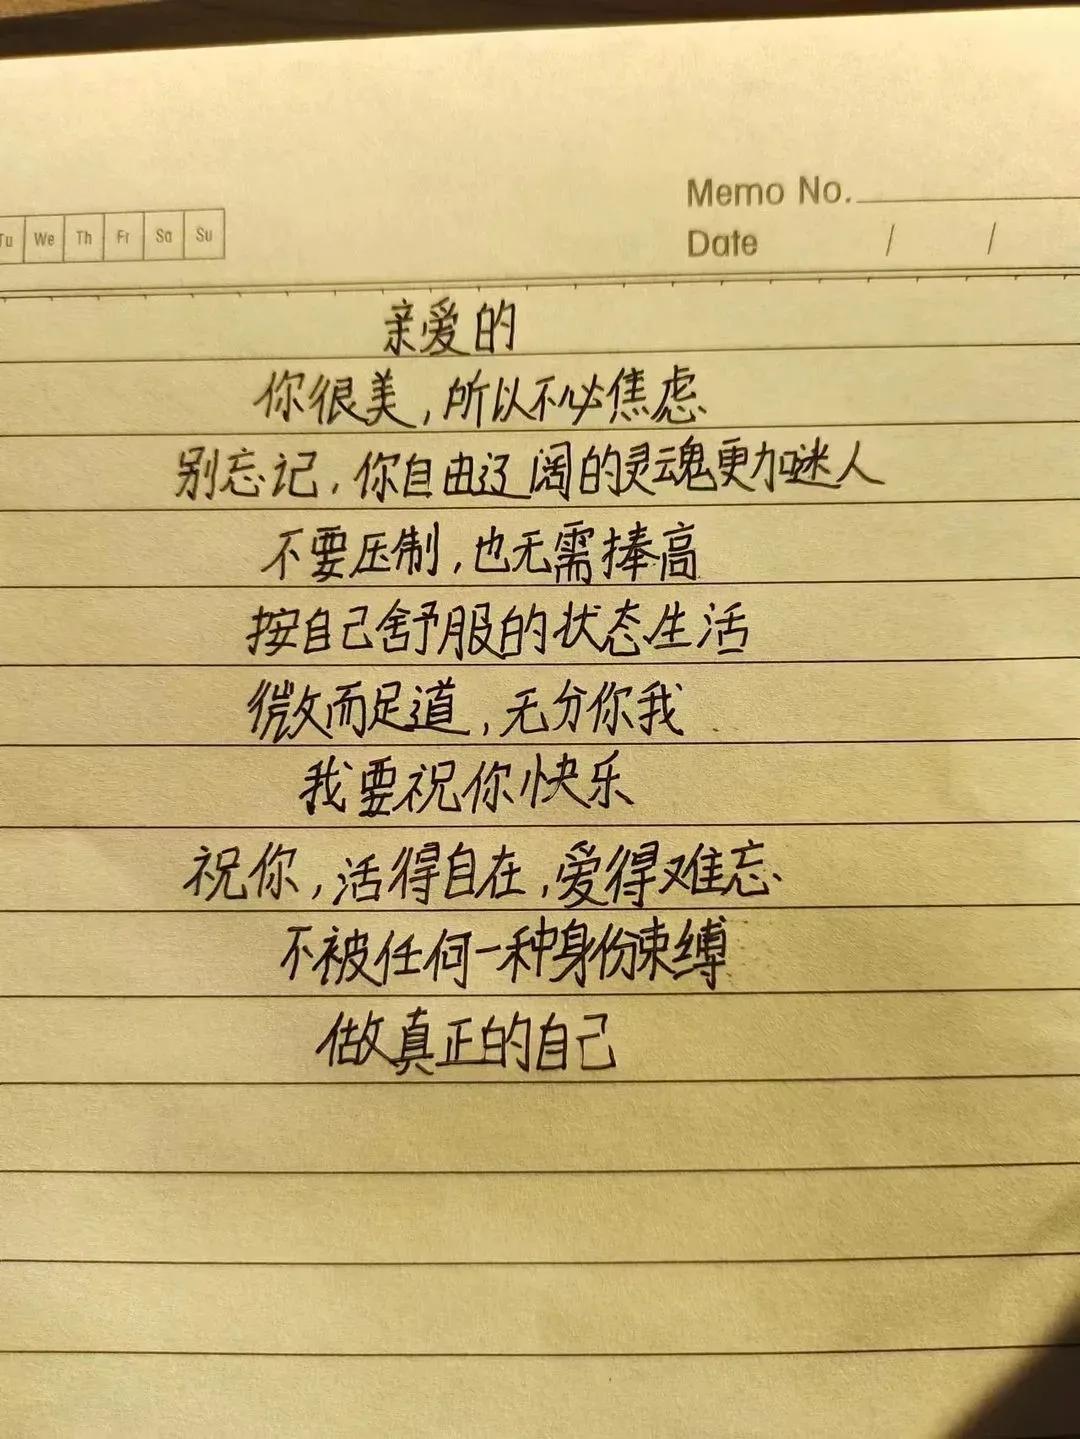 Memo No.
Tu We Th Fr Sa Su
Date / /
亲爱的
你很美，所以不必焦虑
别忘记，你自由辽阔的灵魂更加迷人
不要压制，也无需捧高
按自己舒服的状态生活
微而足道，无分你我
我要祝你快乐
祝你，活得自在，爱得难忘
不被任何一种身份束缚
做真正的自己